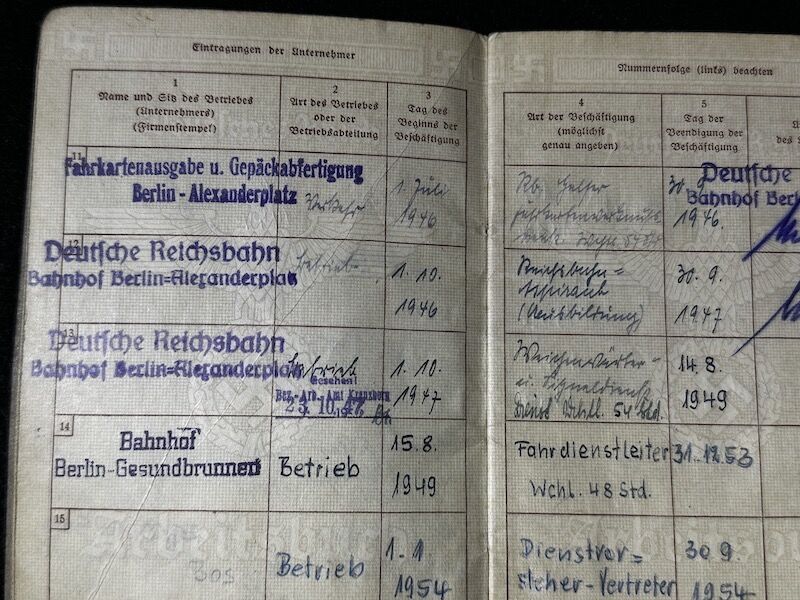 Eintragungen der Unternehmer
1
Name und Sitz des Betriebes
(Unternehmers)
(Firmenstempel)
2
Art des Betriebes
oder der
Betriebsabteilung
3
Tag des
Beginns der
Beschäftigung
11
Fahrkartenausgabe u. Gepäckabfertigung
Berlin - Alexanderplatz
Verkehr
1. Juli
1946
12
Deutsche Reichsbahn
Bahnhof Berlin=Alexanderplatz
Betrieb
1. 10.
1946
13
Deutsche Reichsbahn
Bahnhof Berlin=Alexanderplatz
Betrieb
Gesehen!
Bez.-Arb. Amt Kreuzberg
23. 10. 47
1. 10.
1947
14
Bahnhof
Berlin-Gesundbrunnen
Betrieb
15.8.
1949
15
305
Betrieb
1.1
1954
Nummernfolge (links) beachten
4
Art der Beschäftigung
(möglichst
genau angeben)
5
Tag der
Beendigung der
Beschäftigung
Rb. Helfer
30. 9.
1946.
Deutsche
Bahnhof Berl
Reichsbahn=
Aspirant
(Ausbildung)
30. 9.
1947
Weichenwärter-
u. Signaldienst
54 Std.
14.8.
1949
Fahrdienstleiter
Wchl. 48 Std.
31.12.53
Dienstvor=
steher-Vertreter
30 9.
1954